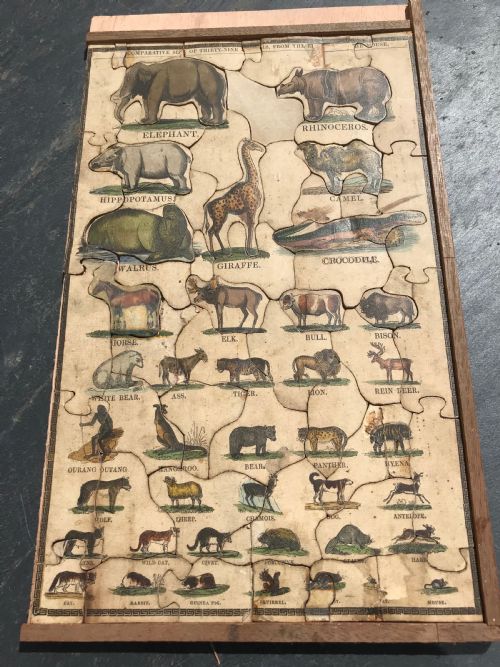 COMPARATIVE SIZ OF THIRTY-NINE S, FROM THE E HOUSE.
ELEPHANT. RHINOCEROS.
HIPPOPOTAMUS. CAMEL.
WALRUS. GIRAFFE. CROCODILE.
HORSE. ELK. BULL. BISON.
WHITE BEAR. ASS. TIGER. LION. REIN DEER.
OURANG OUTANG. KANGAROO. BEAR. PANTHER. HYENA.
WOLF. SHEEP. CHAMOIS. DOG. ANTELOPE.
WILD CAT. CIVET. PORCUPINE. HARE.
CAT. RABBIT. GUINEA PIG. SQUIRREL. MOUSE.